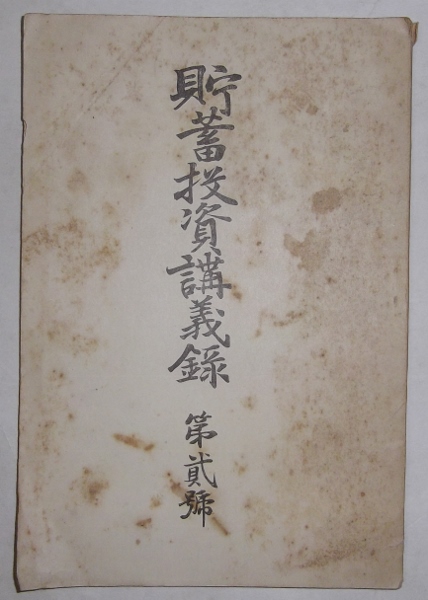 貯蓄投資講義録 第貳號